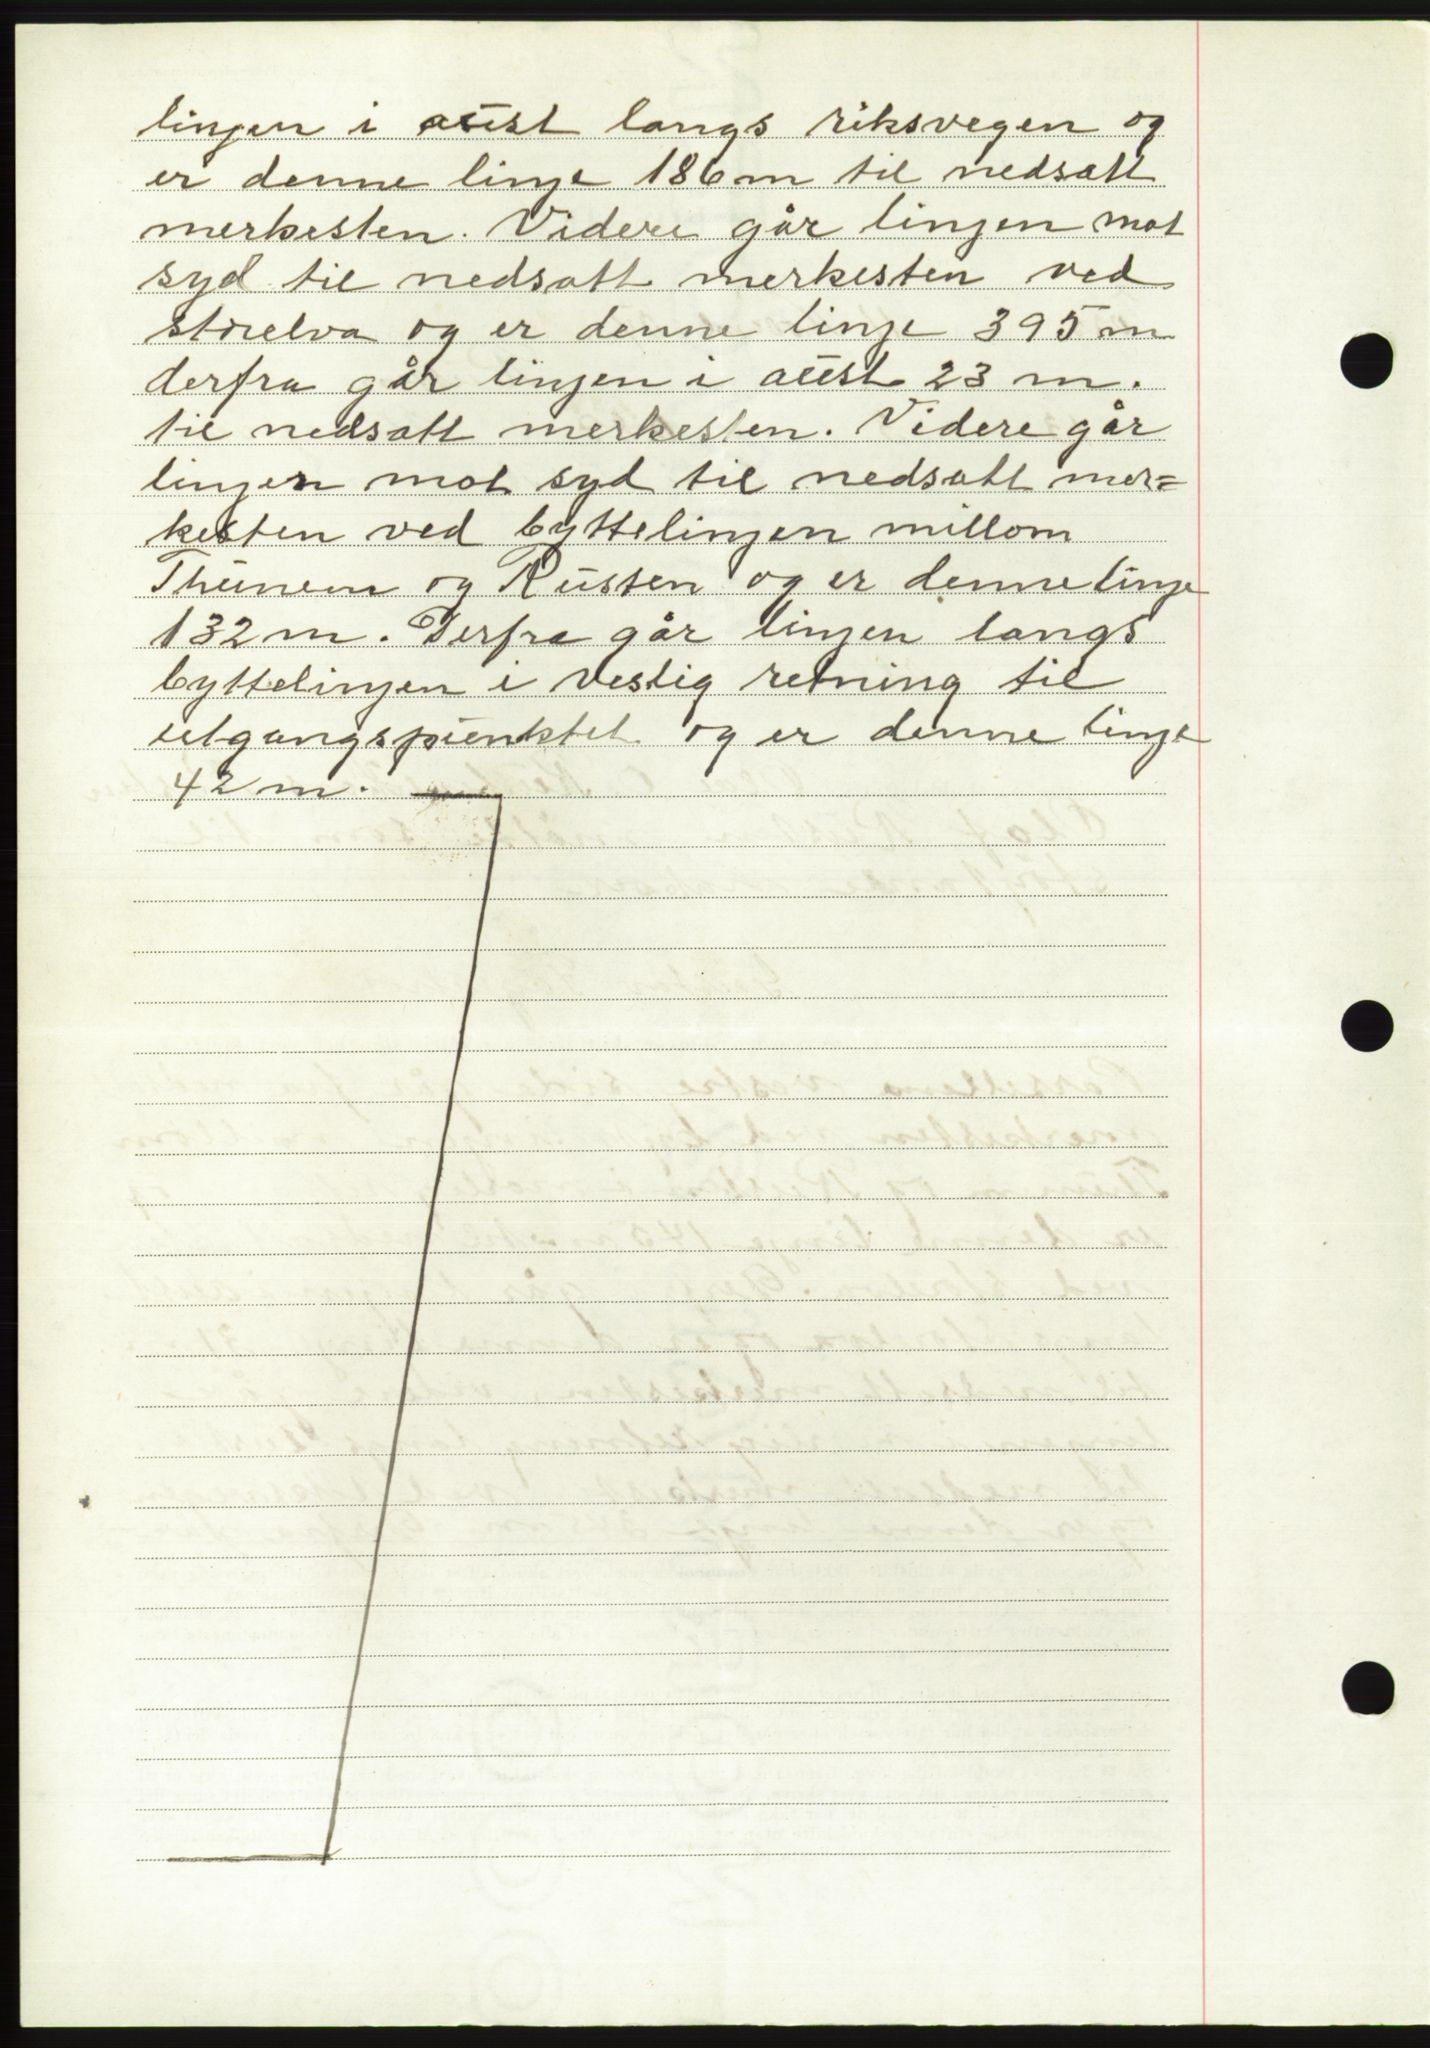 linjen i aust langs riksvegen og
er denne linje 186 m til nedsatt
merkesten. Videre går linjen mot
syd til nedsatt merkesten ved
storelva og er denne linje 395 m
derfra går linjen i aust 23 m.
til nedsatt merkesten. Videre går
linjen mot syd til nedsatt mer=
kesten ved byttelinjen millom
Thunem og Rusten og er denne linje
132 m. Derfra går linjen langs
byttelinjen i vestig retning til
utgangspunktet og er denne linje
42 m.